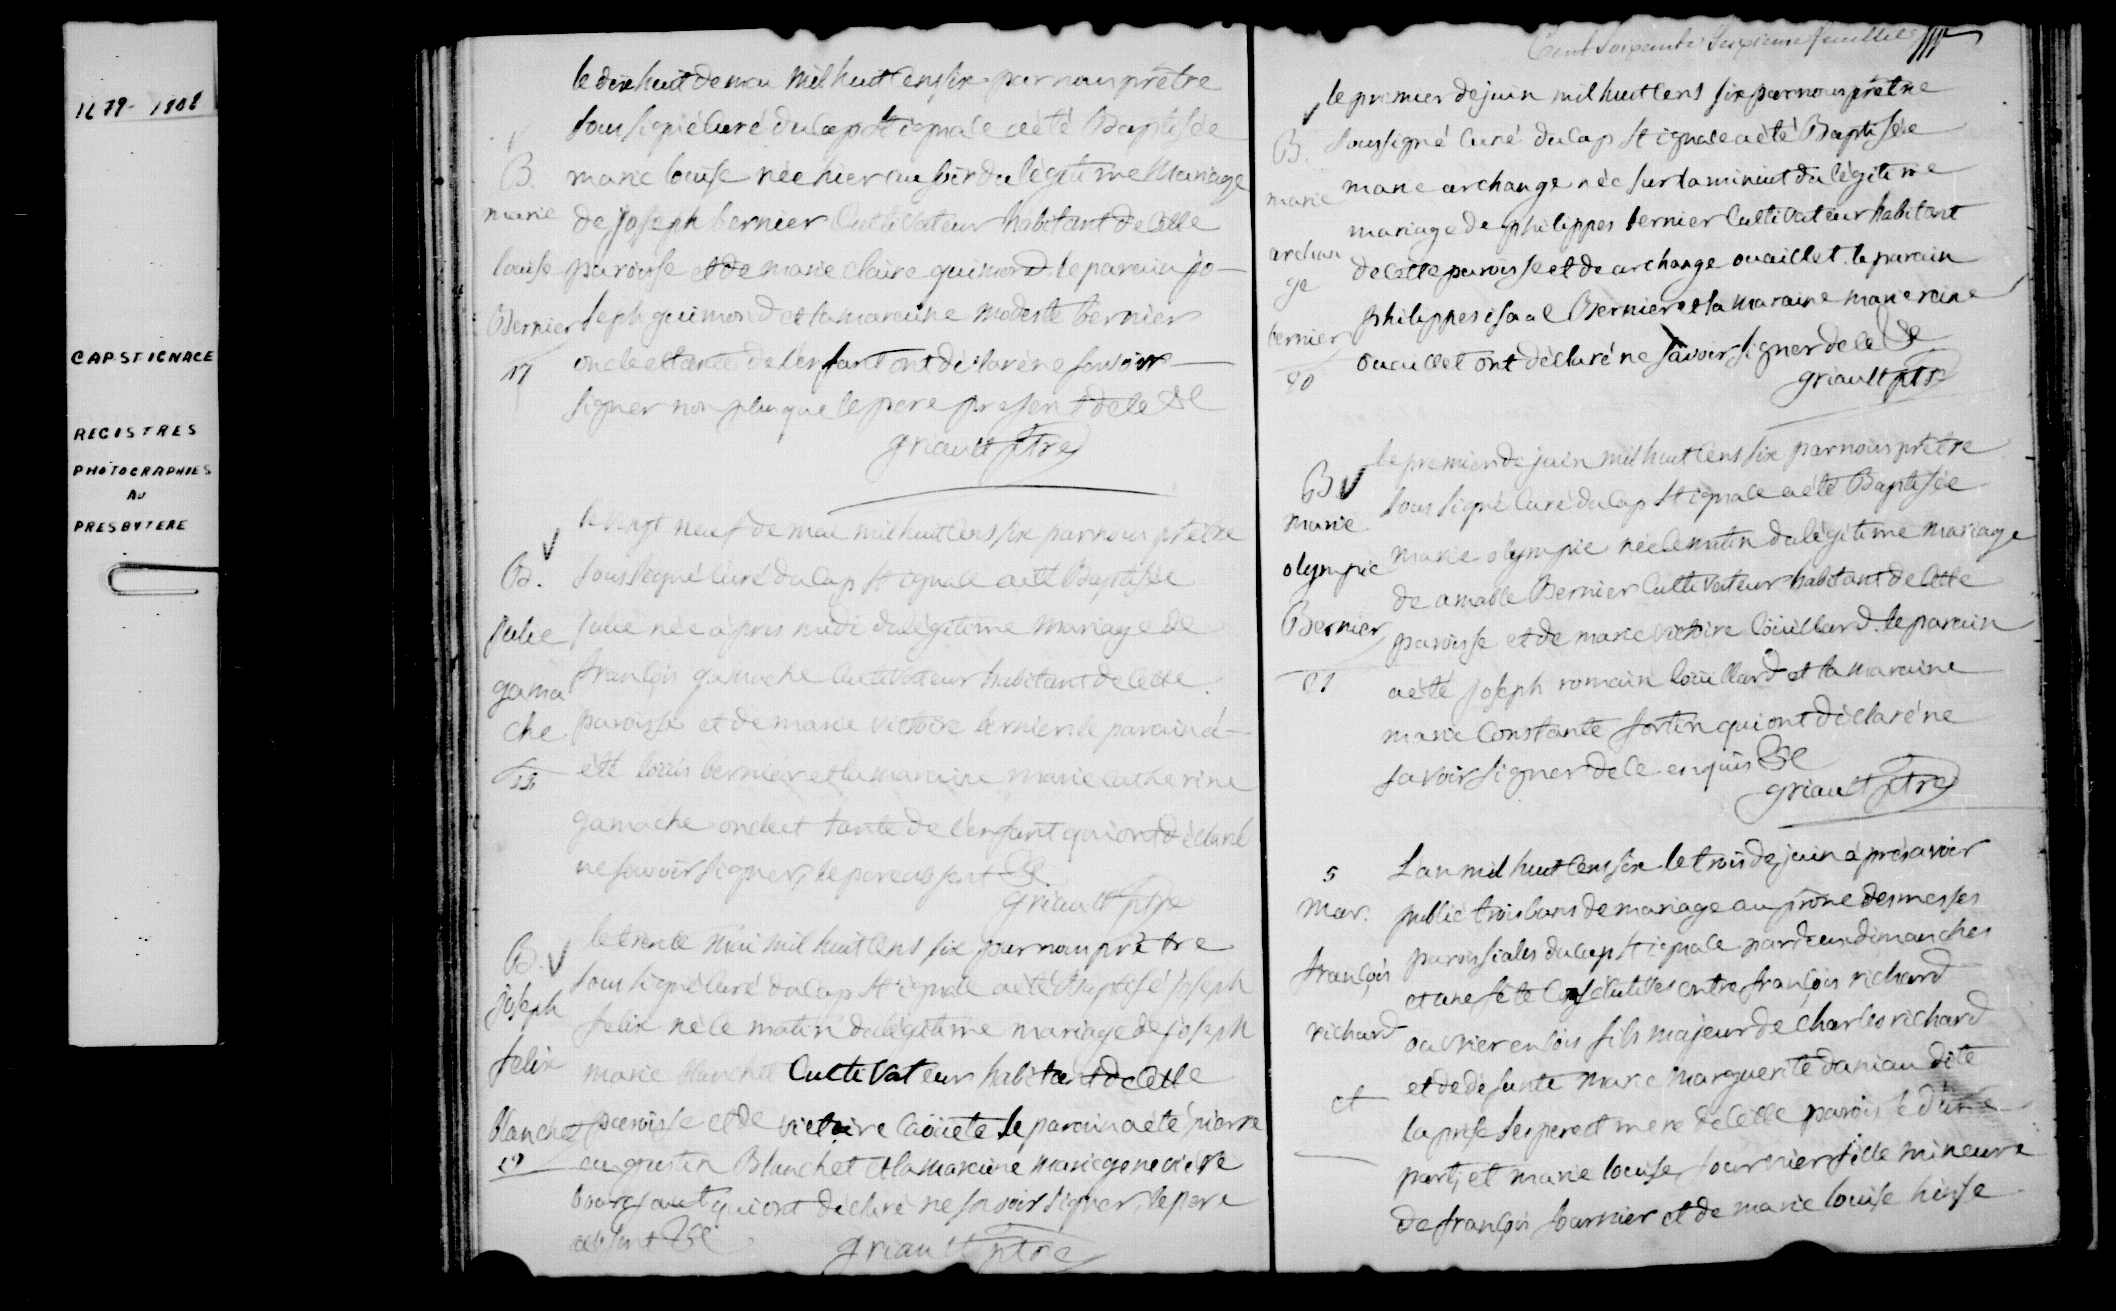 1679-1808
CAP ST IGNACE
REGISTRES
PHOTOGRAPHIES
AU
PRESBYTERE
le dix huit de mai mil huit cens six par nous prêtre
soussigné curé du cap st ignace a été Baptisée
marie louise née hier au soir du légitime mariage
de joseph bernier cultivateur habitant de cette
paroisse et de marie claire guimond le parain jo-
seph guimond et la maraine modeste bernier
oncle et tante de l'enfant ont déclaré ne savoir
signer non plus que le pere present de ce
griault ptre
B.
marie
louise
Bernier
17
le vingt neuf de mai mil huit cens six par nous prêtre
soussigné curé du cap st ignace a été Baptisée
julie née après midi du légitime mariage de
françois gamache cultivateur habitant de cette
paroisse et de marie victoire bernier le parain a
été louis bernier et la maraine marie catherine
gamache oncle et tante de l'enfant qui ont déclaré
ne savoir signer, le pere absent
griault ptre
B.
julie
gama
che
le trente mai mil huit cens six par nous prêtre
soussigné curé du cap st ignace a été Baptisé joseph
felix né le matin du légitime mariage de joseph
marie blanchet Cultivateur habitant de cette
paroisse et de victoire le parain a été pierre
augustin Blanchet et la maraine marie genevieve
qui ont déclaré ne savoir signer, le pere
absent
griault ptre
B.
joseph
felix
blanchet
19
Cent soixante feuillet
le premier de juin mil huit cens six par nous prêtre
soussigné curé du cap st ignace a été Baptisée
marie archange née sur la minuit du légitime
mariage de philippes bernier cultivateur habitant
de cette paroisse et de archange ouaillet. le parain
philippes isaac Bernier et la maraine marie reine
ouaillet ont déclaré ne savoir signer de ce
griault ptre
B.
marie
archan
ge
bernier
20
le premier de juin mil huit cens six par nous prêtre
soussigné curé du cap st ignace a été Baptisée
marie olympie née le matin du légitime mariage
de amable Bernier cultivateur habitant de cette
paroisse et de marie victoire couillard. le parain
a été joseph romain couillard et la maraine
marie constante fortin qui ont déclaré ne
savoir signer de ce enquis
griault ptre
B.
marie
olympie
Bernier
21
L an mil huit cens six le trois de juin après avoir
publié trois bans de mariage au prône des messes
paroissiales du cap st ignace par deux dimanches
et une fête consécutives entre françois richard
ouvrier en bois fils majeur de charles richard
et de défunte marie marguerite daniau dite
laprise ses pere et mere de cette paroisse d'une
part, et marie louise fournier fille mineure
de françois fournier et de marie louise hinse
5
mar.
françois
richard
et